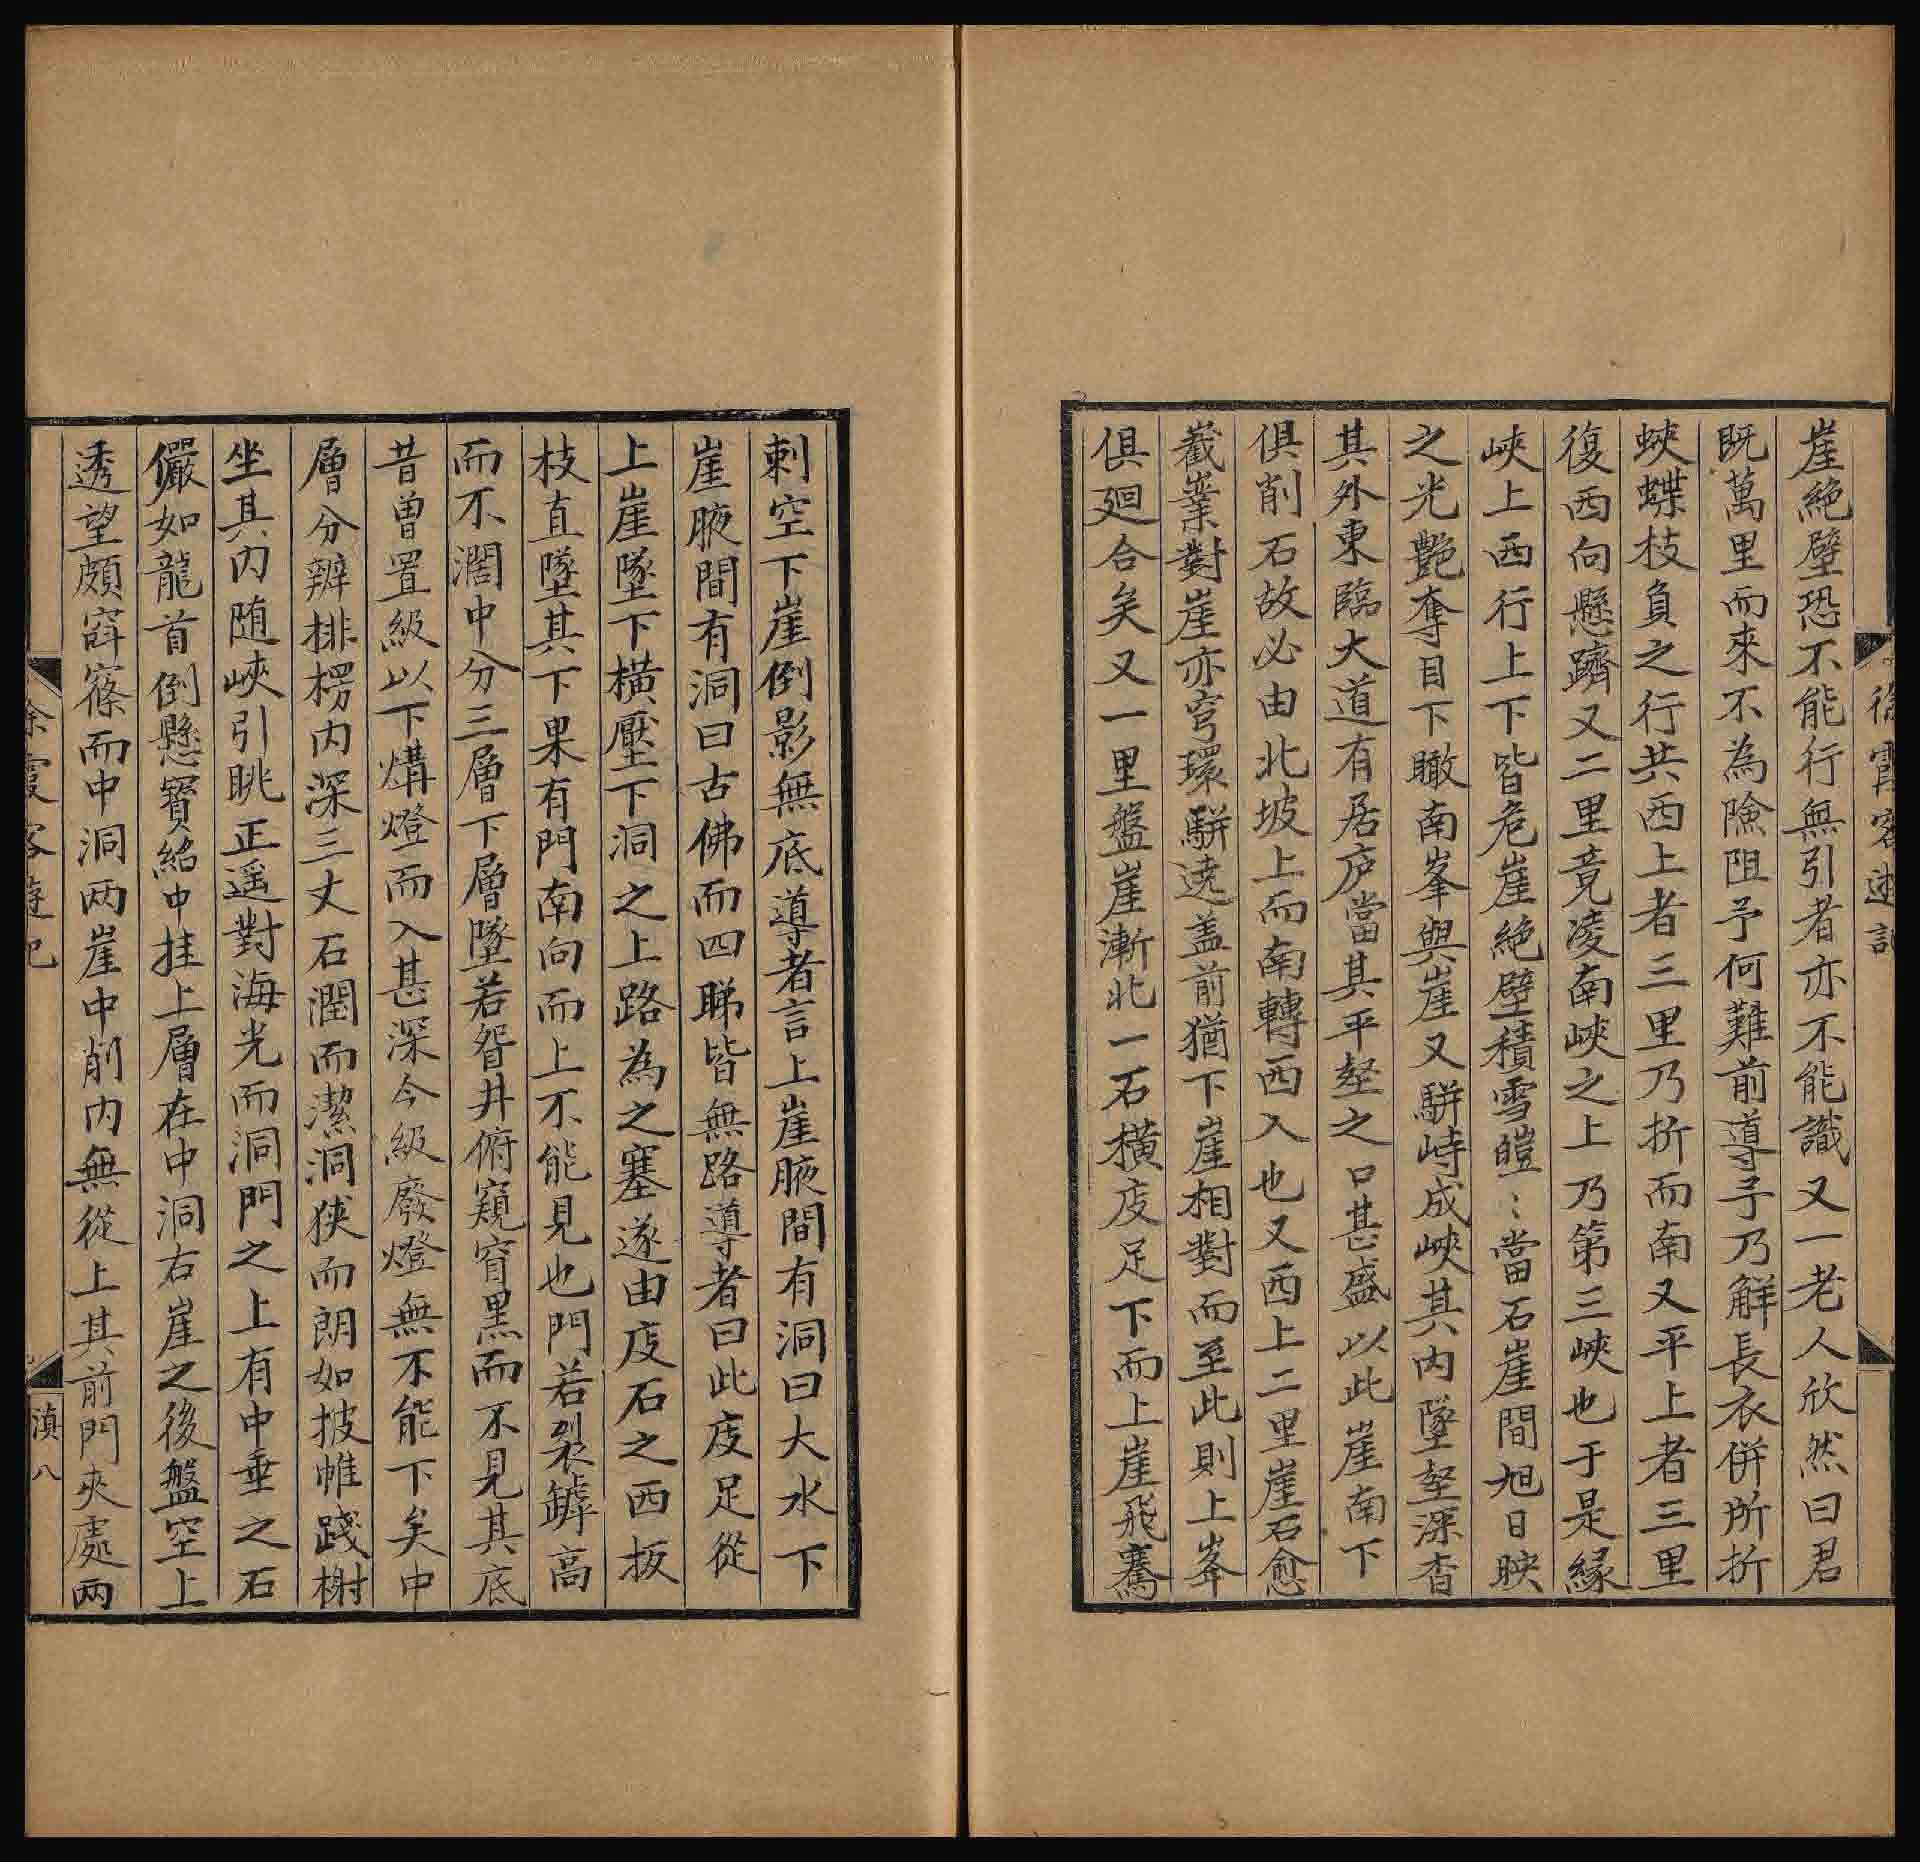 崖絶壁恐不能行無引者亦不能識又一老人欣然曰君
既萬里而來不為險阻予何難前導予乃解長衣併所折
蛺蝶枝負之行共西上者三里乃折而南又平上者三里
復西向懸躋又二里竟凌南峽之上乃第三峽也于是縁
峽上西行上下皆危崖絶壁積雪皚〻當石崖間旭日映
之光艷奪目下瞰南峯與崖又駢峙成峽其内墜壑深杳
其外東臨大道有居庐當其平壑之口甚盛以此崖南下
俱削石故必由北坡上而南轉西入也又西上二里崖石愈
巀嶪對崖亦穹環駢遶盖前猶下崖相對而至此則上峯
俱廻合矣又一里盤崖漸北一石橫庋足下而上崖飛騫
刺空下崖倒影無底導者言上崖腋間有洞曰大水下
崖腋間有洞曰古佛而四睇皆無路導者曰此庋足從
上崖墜下橫壓下洞之上路為之塞遂由庋石之西扳
枝直墜其下果有門南向而上不能見也門若裂罅高
而不濶中分三層下層墜若眢井俯窺窅黒而不見其底
昔曽置級以下㷌燈而入甚深今級廢燈無不能下矣中
層分辨排楞内深三丈石潤而潔洞狹而朗如披帷踐榭
坐其内随峽引眺正遥對海光而洞門之上有中垂之石
儼如龍首倒懸寳絡中挂上層在中洞右崖之後盤空上
透望頗窙篠而中洞两崖中削内無從上其前門夾處兩
徐霞客遊記
滇八